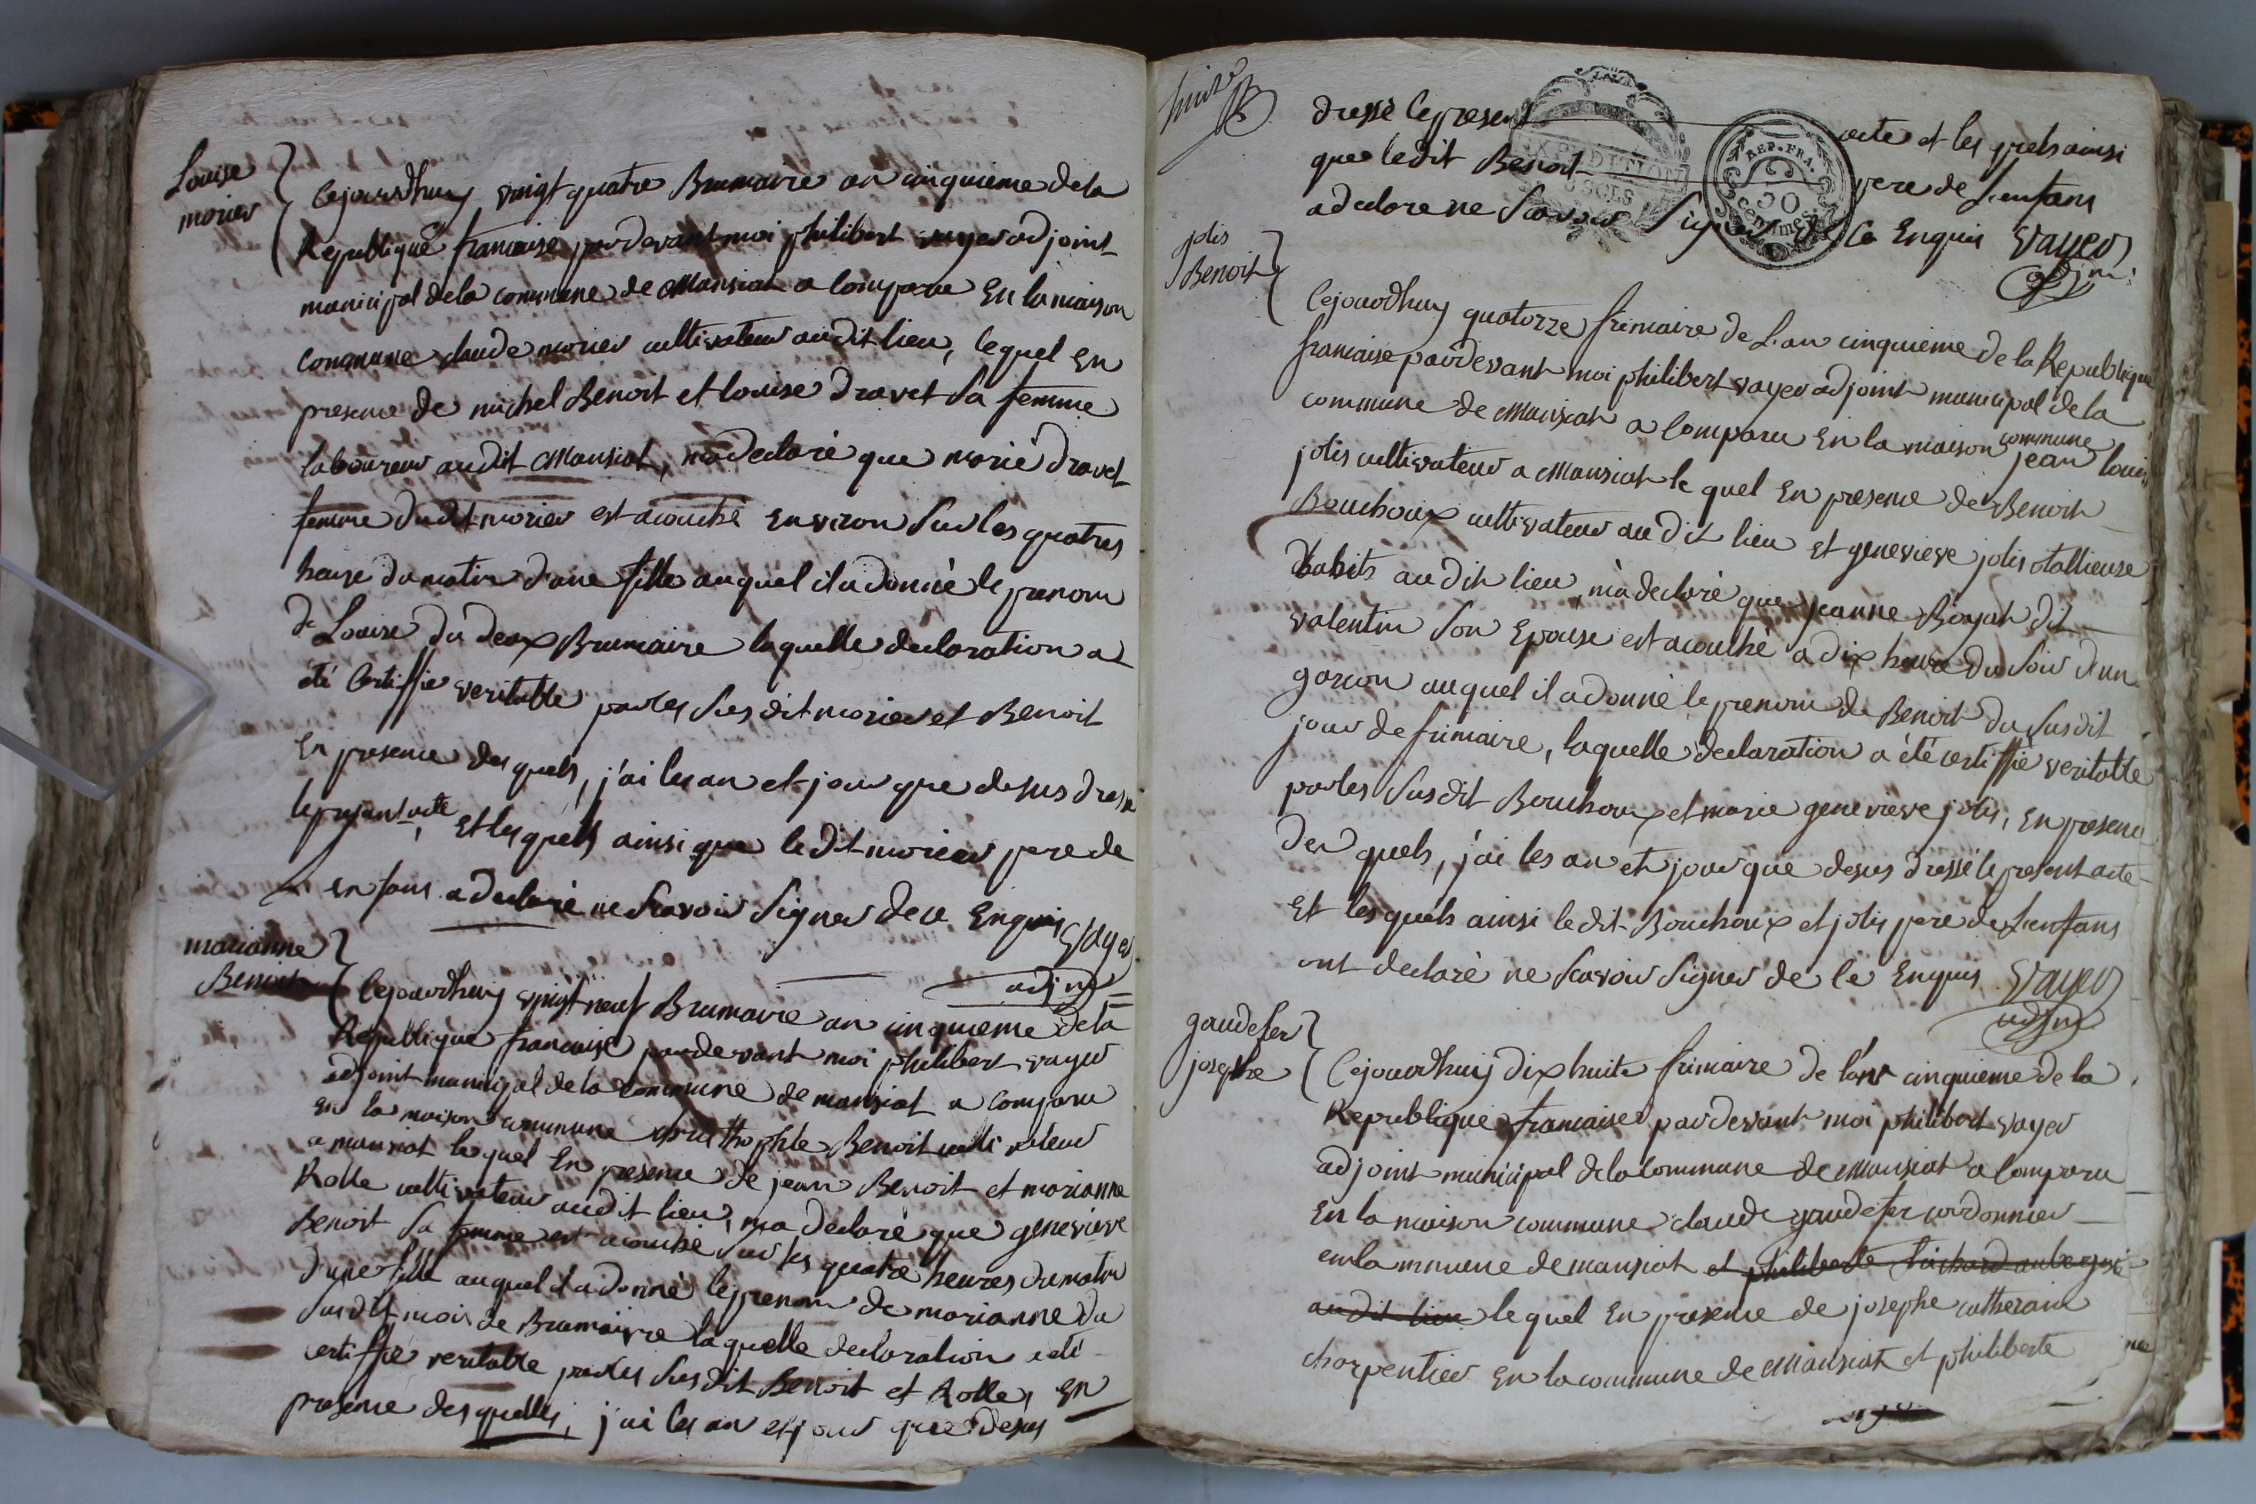 Louise
morier
Cejourdhuy vingt quatre Brumaire an cinquieme dela
Republique francaise pardevant moi philibert vayer adjoint
municipal dela commune de Mansiat a comparu En la maison
commune claude morier cultivateur audit lieu, lequel En
presence de michel Benoit et louise dravet sa femme
laboureur audit Mansiat, m'a declaré que marie dravet
femme dudit morier est acouché Environ sur les quatres
heure du matin d'une fille auquel il a donné le prenom
de Louise du deux Brumaire laquelle declaration a
été Certiffié veritable par les susdit morier et Benoit
En presence des quels, j'ai les an et jour que desus dressé
le present acte, Et les quels ainsi que le dit morier pere de
enfans a declaré ne scavoir signer de ce Enquis Vayer
adjm
marianne
Benoit
Cejourdhuy vingt neuf Brumaire an cinquieme de la
Republique francaise pardevant moi philibert vayer
adjoint municipal de la commune de mansiat a comparu
en la maison commune Benoit cultivateur
a mansiat lequel En presence de jean Benoit et marianne
Rolle cultivateur audit lieu, m'a declaré que genevieve
Benoit sa femme est acouché sur les quatre heures du matin
d'une fille auquel il a donné le prenom de marianne du
susdit mois de Brumaire laquelle declaration a été
certiffié veritable par les susdit Benoit et Rolle, En
presence des quelles, j'ai les an et jour que desus
huit
dressé le present acte et les quels ainsi
que ledit Benoit pere de L'enfans
a declare ne scavoir signer de Ce Enquis Vayer
adjm
REP. FRA.
50
CENTIMES
jolis
Benoit
Cejourdhuy quatorze frimaire de L'an cinquieme de la Republique
francaise pardevant moi philibert vayer adjoint municipal de la
commune de Mansiat a comparu En la maison commune jean louis
jolis cultivateur a Mansiat le quel En presence de Benoit
Bouchoux cultivateur au dit lieu et genevieve jolis
d'habits au dit lieu, m'a declaré que jeanne Boyat dit
valentin son Epouse est acouché a dix heure du soir d'un
garcon auquel il a donné le prenom de Benoit du susdit
jour de frimaire, laquelle declaration a été certiffié veritable
par les susdit Bouchoux et marie genevieve jolis, En presence
des quels, j'ai les an et jour que desus dressé le present acte
Et les quels ainsi le dit Bouchoux et jolis pere de L'enfans
ont declaré ne scavoir signer de ce Enquis Vayer
adjm
gaudefer
josephe
Cejourdhuij dix huite frimaire de l'an cinquieme de la
Republique francaise pardevant moi philibert vayer
adjoint municipal dela Commune de Mansiat a comparu
En la maison commune claude gaudefer cordonnier
en la mmuene de mansiat et philiberte aubergiste
audit lieu lequel En presence de josephe catherine
charpentier En la commune de Mansiat et philiberte